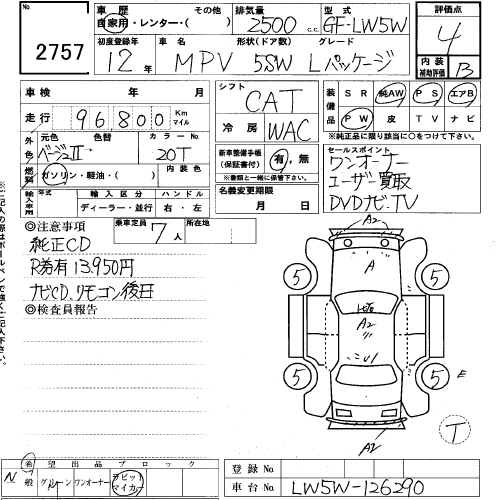 No
2757
車歴 その他
自家用・レンター・( )
排気量
2500 c.c.
型式
GF-LW5W
評価点
4
初度登録年
12年
車名
MPV
形状(ドア数)
5SW
グレード
Lパッケージ
内装
補助評価
B
車検 年 月
走行 96800 Km マイル
シフト
CAT
装備品
SR 純AW PS エアB
PW 皮 TV ナビ
※純正品に限り該当に○をつけて下さい。
外色
元色 色替 カラーNo
ベージュII・ 20T
冷房
WAC
燃料
ガソリン・軽油・( )
内装色
新車整備手帳
(保証書付)
有・無
※書類と一緒に保管下さい。
セールスポイント
ワンオーナー
ユーザー買取
DVDナビ.TV
輸入車用
年式 輸入区分 ハンドル
ディーラー・並行 右・左
名義変更期限
月 日
◎注意事項
乗車定員
7人
所在地
純正CD
R券有 13,950円
ナビCD、リモコン後日
◎検査員報告
A2
A
5
5
A2
5
5
E
A2
T
希望出品ブロック
N
一般
ワンオーナー
ラビット
マイカー
登録No
車台No
LW5W-126290